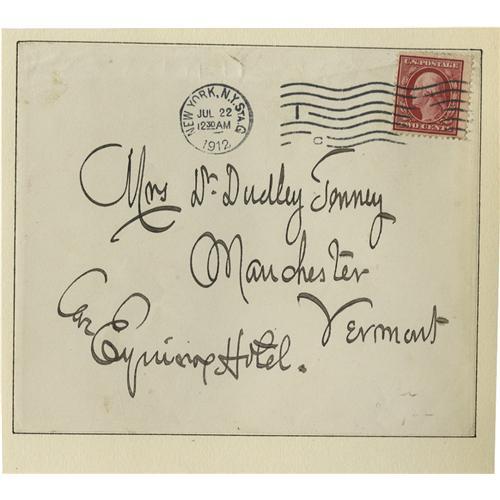 NEW YORK, N.Y. STA. G
JUL 22
12 30 AM
1912
U.S. POSTAGE
TWO CENTS
Mrs Dr Dudley Tenney
Manchester
Vermont
Car Equinox Hotel.